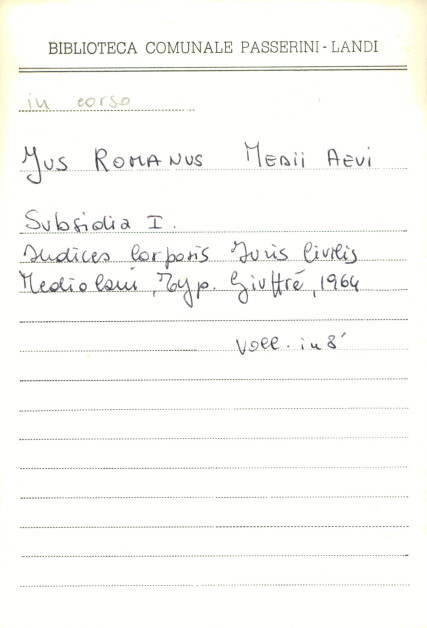 BIBLIOTECA COMUNALE PASSERINI-LANDI
in corso
Jus ROMANUS MEDII AEVI
Subsidia I.
Indices Corporis Juris Civilis
Mediolani, Typ. Giuffré, 1964
Voll. in 8°